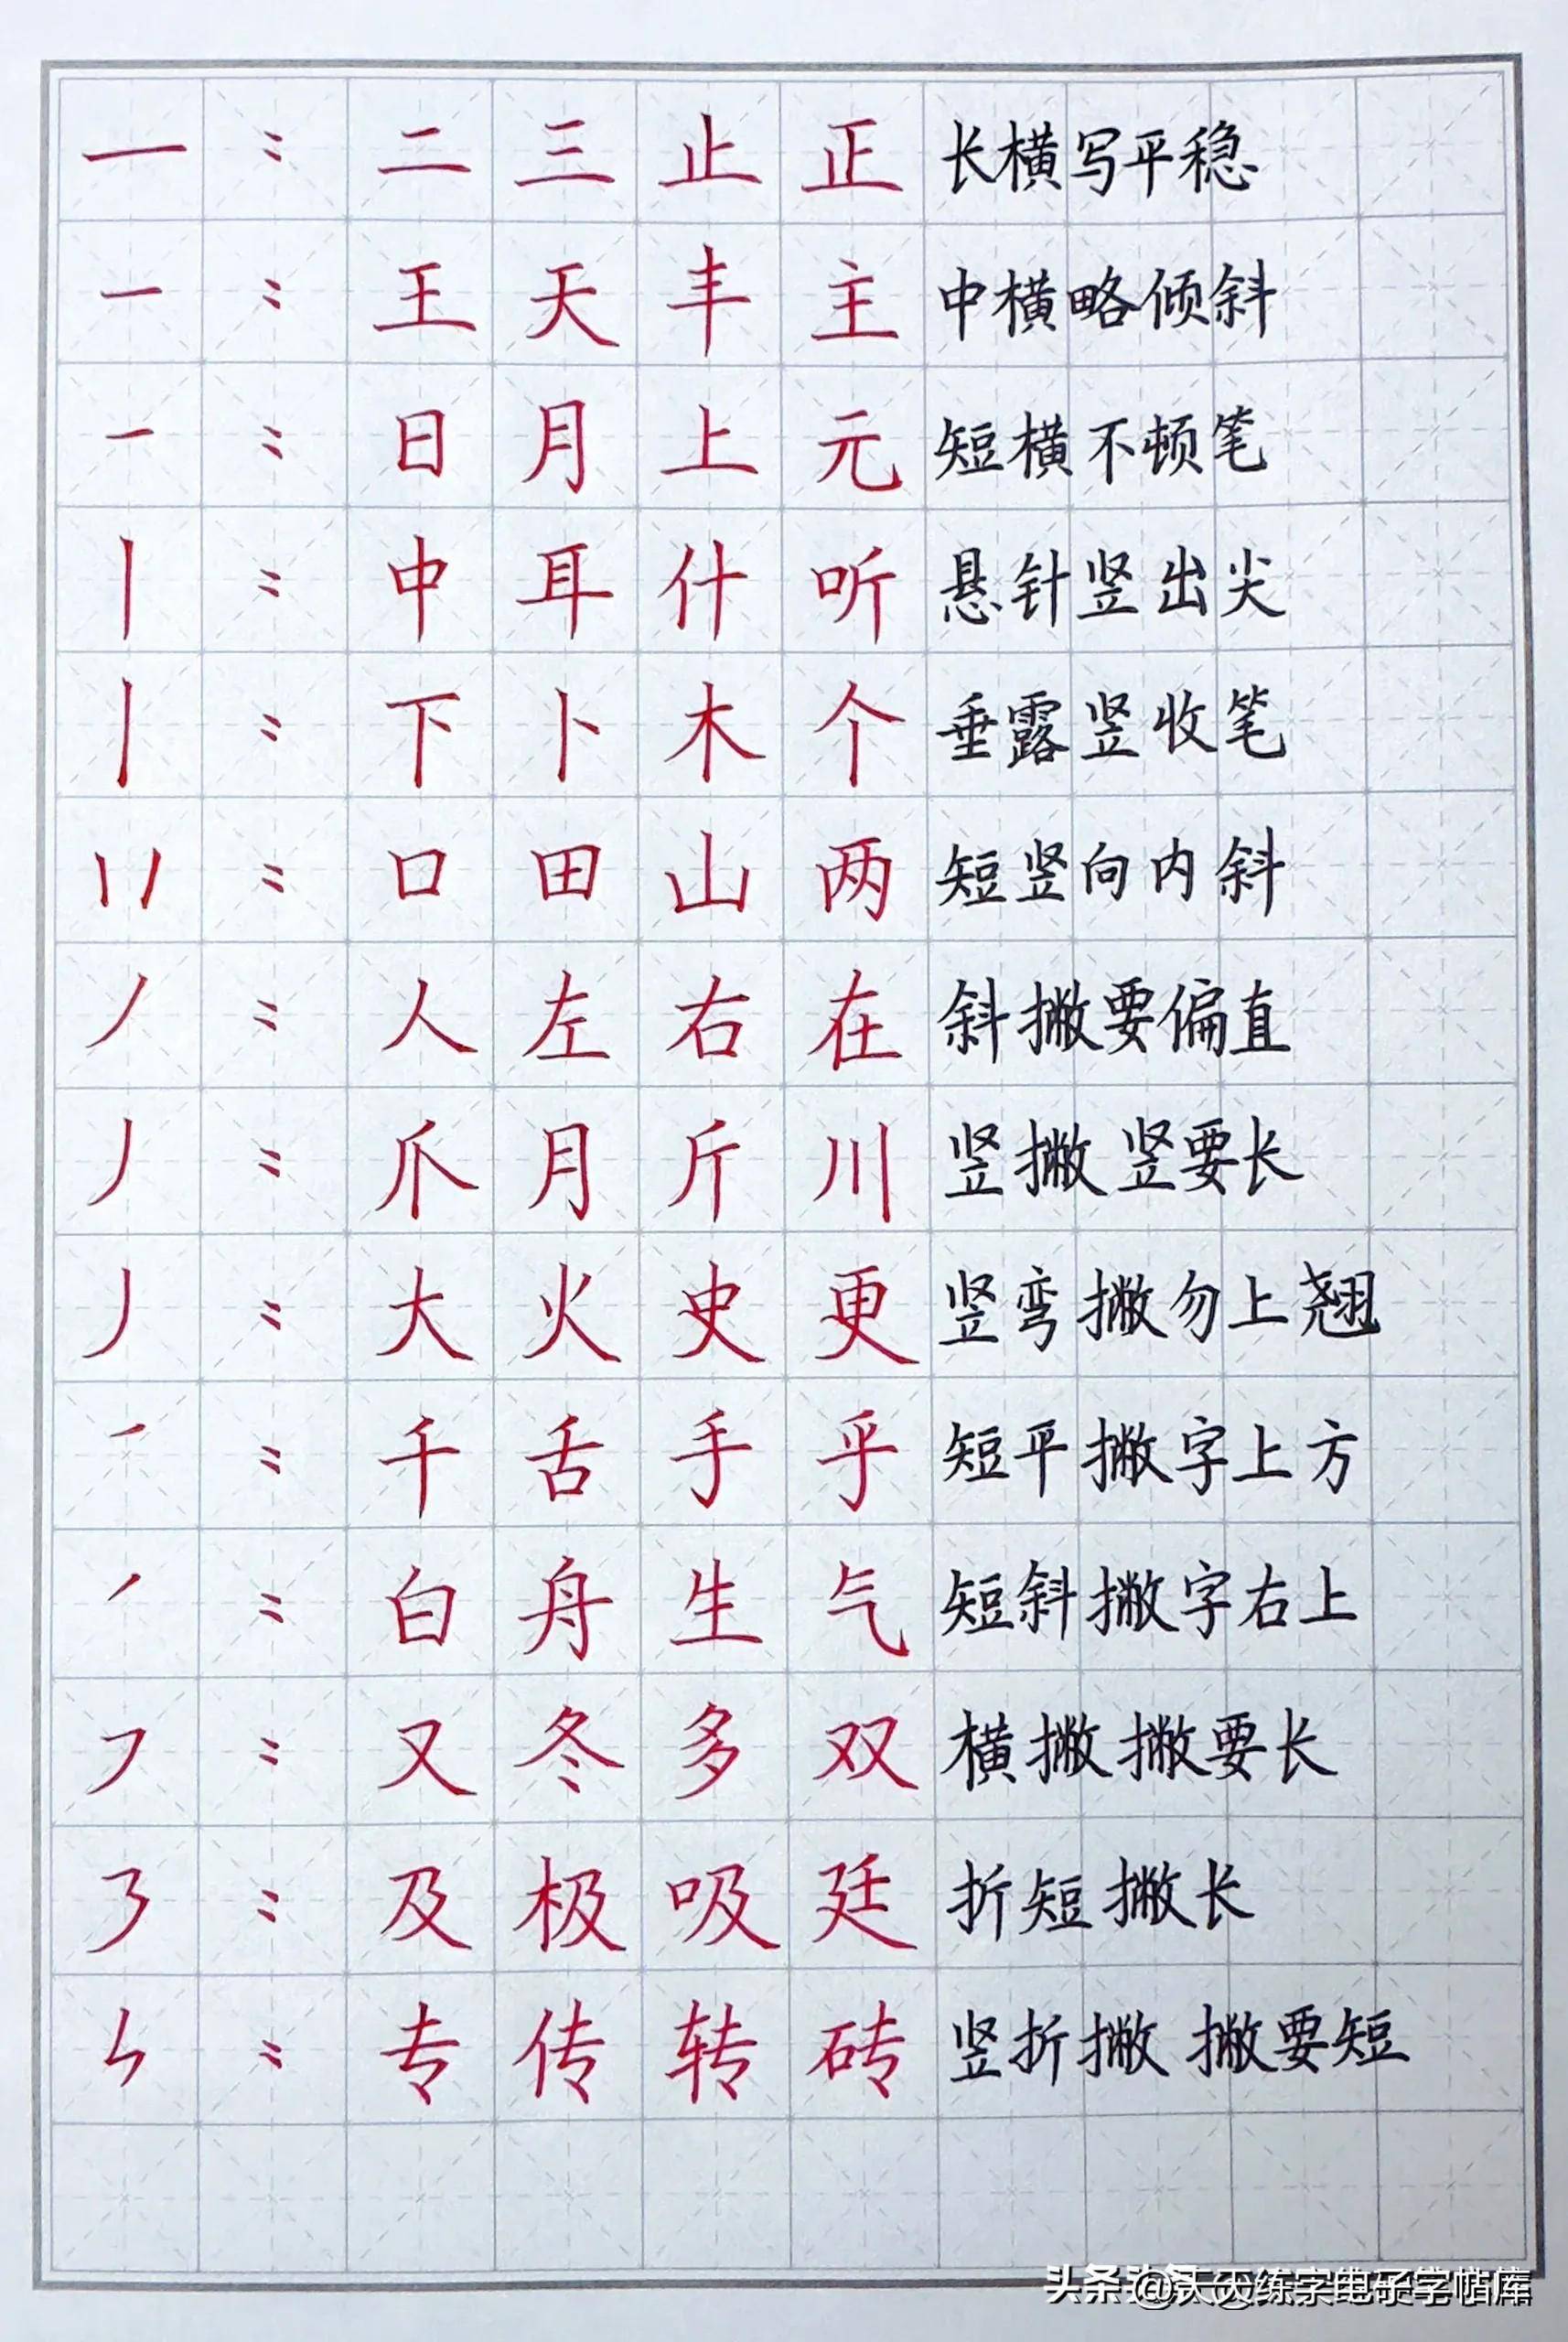 一：二三止正 长横写平稳
一：王天丰主 中横略倾斜
一：日月上元 短横不顿笔
丨：中耳什听 悬针竖出尖
丨：下卜木个 垂露竖收笔
〢：口田山两 短竖向内斜
丿：人左右在 斜撇要偏直
丿：爪月斤川 竖撇竖要长
丿：大火史更 竖弯撇勿上翘
㇒：千舌手乎 短平撇字上方
㇒：白舟生气 短斜撇字右上
㇇：又冬多双 横撇撇要长
㇋：及极吸廷 折短撇长
ㄣ：专传转砖 竖折撇 撇要短
头条 @天天练字电子字帖库